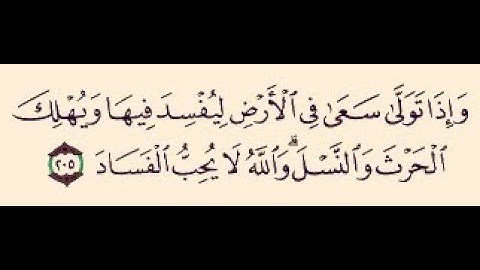 وَإِذَا تَوَلَّىٰ سَعَىٰ فِي ٱلْأَرْضِ لِيُفْسِدَ فِيهَا وَيُهْلِكَ
ٱلْحَرْثَ وَٱلنَّسْلَ ۗ وَٱللَّهُ لَا يُحِبُّ ٱلْفَسَادَ ٢٠٥